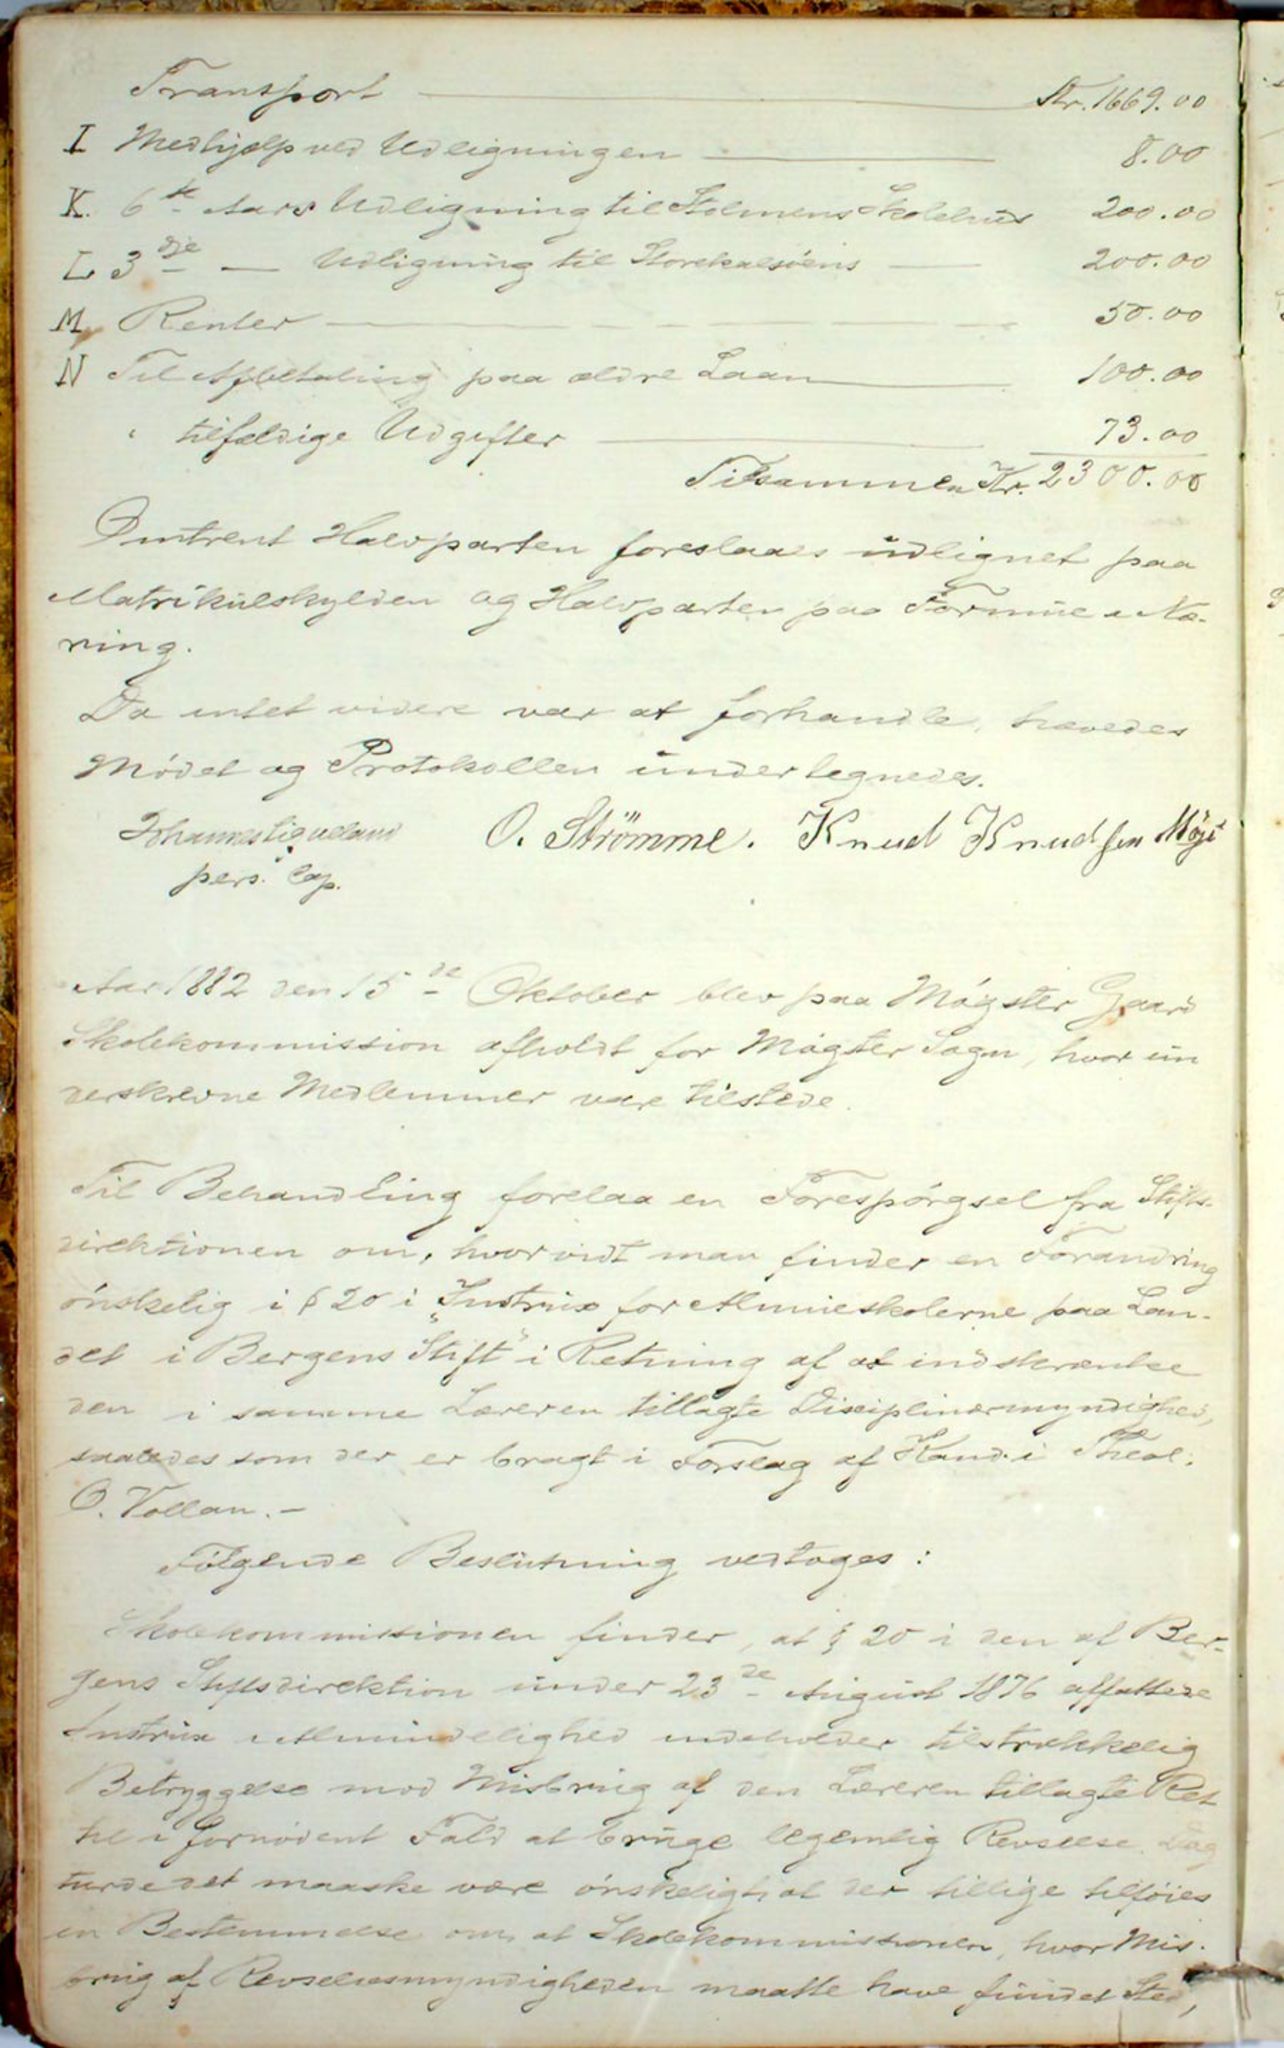 Transport Kr. 1669.00
I Medhjælp ved Udligningen 8.00
K. 6te Aars Udligning til Stolmens Skolehus 200.00
L 3dje — Udligning til Storekalsøens — 200.00
M, Renter 50.00
N Til Afbetaling paa ældre Laan 100.00
" tilfældige Udgifter 73.00
Tilsammen Kr. 2300.00
Omtrent Halvparten foreslaaes udlignet paa
Matrikulskylden og Halvparten paa Formue & Næ-
ring.
Da intet videre var at forhandle, hævedes
Mødet og Protokollen undertegnedes.
Johannes Liqueland O. Strømme. Knud Knudsen Møgst
pers. Cap.
Aar 1882 den 15de Oktober blev paa Møgster Gaard
Skolekommission afholdt for Møgster Sogn, hvor un
derskrevne Medlemmer vare tilstede.
Til Behandling forelaa en Forespørgsel fra Stifts-
direktionen om, hvorvidt man finder en Forandring
ønskelig i § 20 i "Instrux for Almueskolerne paa Lan-
det i Bergens Stift" i Retning af at indskrænke
den i samme Læreren tillagte Disciplinærmyndighed,
saaledes som der er bragt i Forslag af Kand. i Theol.
O. Vollan. -
Følgende Beslutning vedtoges:
Skolekommissionen finder, at § 20 i den af Ber-
gens Stiftsdirektion under 23de August 1876 affattede
Instrux i Almindelighed indeholder tilstrækkelig
Betryggelse mod Misbrug af den Læreren tillagte Ret
til i fornødent Fald at bruge legemlig Revselse. Dog
turde det maaske være ønskeligt, at der tillige tilføies
en Bestemmelse om, at Skolekommissionen, hvor Mis-
brug af Revselsesmyndigheden maatte have fundet Sted,